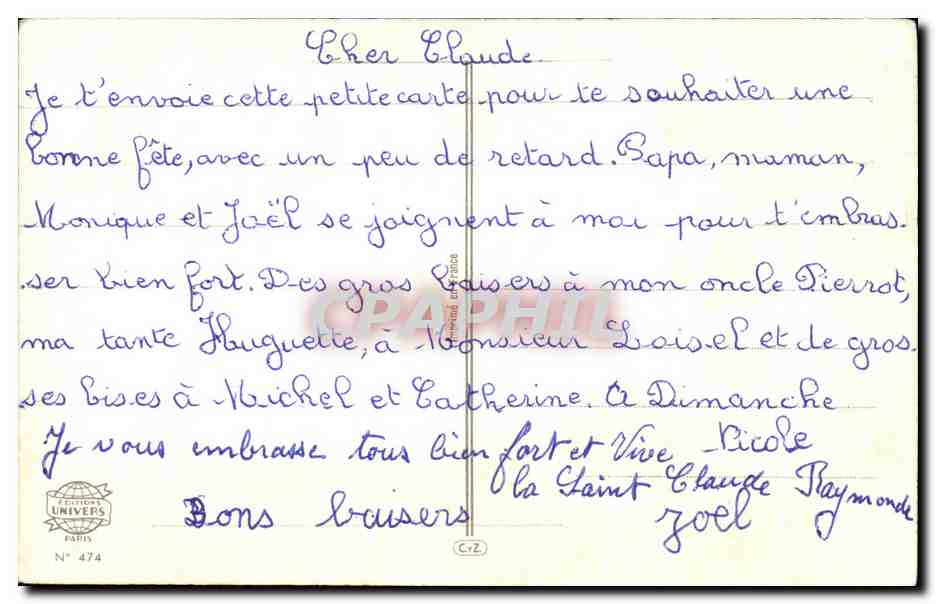 Cher Claude.
Je t'envoie cette petite carte pour te souhaiter une
bonne fête, avec un peu de retard. Papa, maman,
Monique et Joël se joignent à moi pour t'embras-
ser bien fort. Des gros baisers à mon oncle Pierrot,
ma tante Huguette, à Monsieur Loisel et de gros-
ses bises à Michel et Catherine. A Dimanche
Nicole
Je vous embrasse tous bien fort et Vive
la Saint Claude Raymonde
Bons baisers Joël
EDITIONS
UNIVERS
PARIS
N° 474
CYZ
Imprimé en France
CPAPHIL